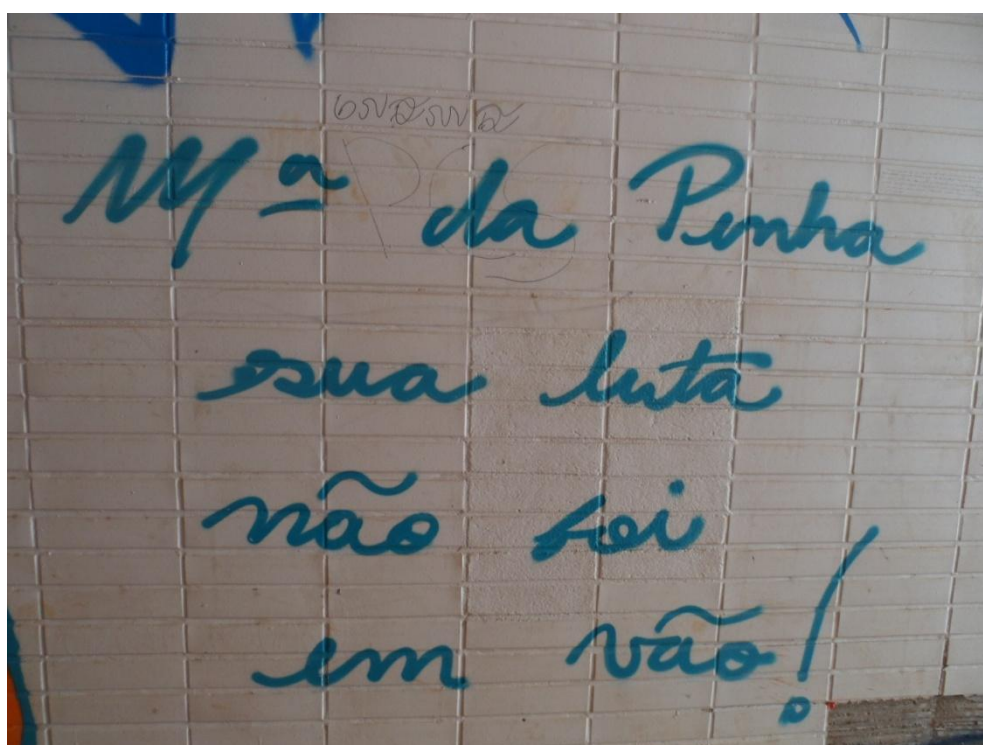 Mª da Penha
sua luta
não foi
em vão!